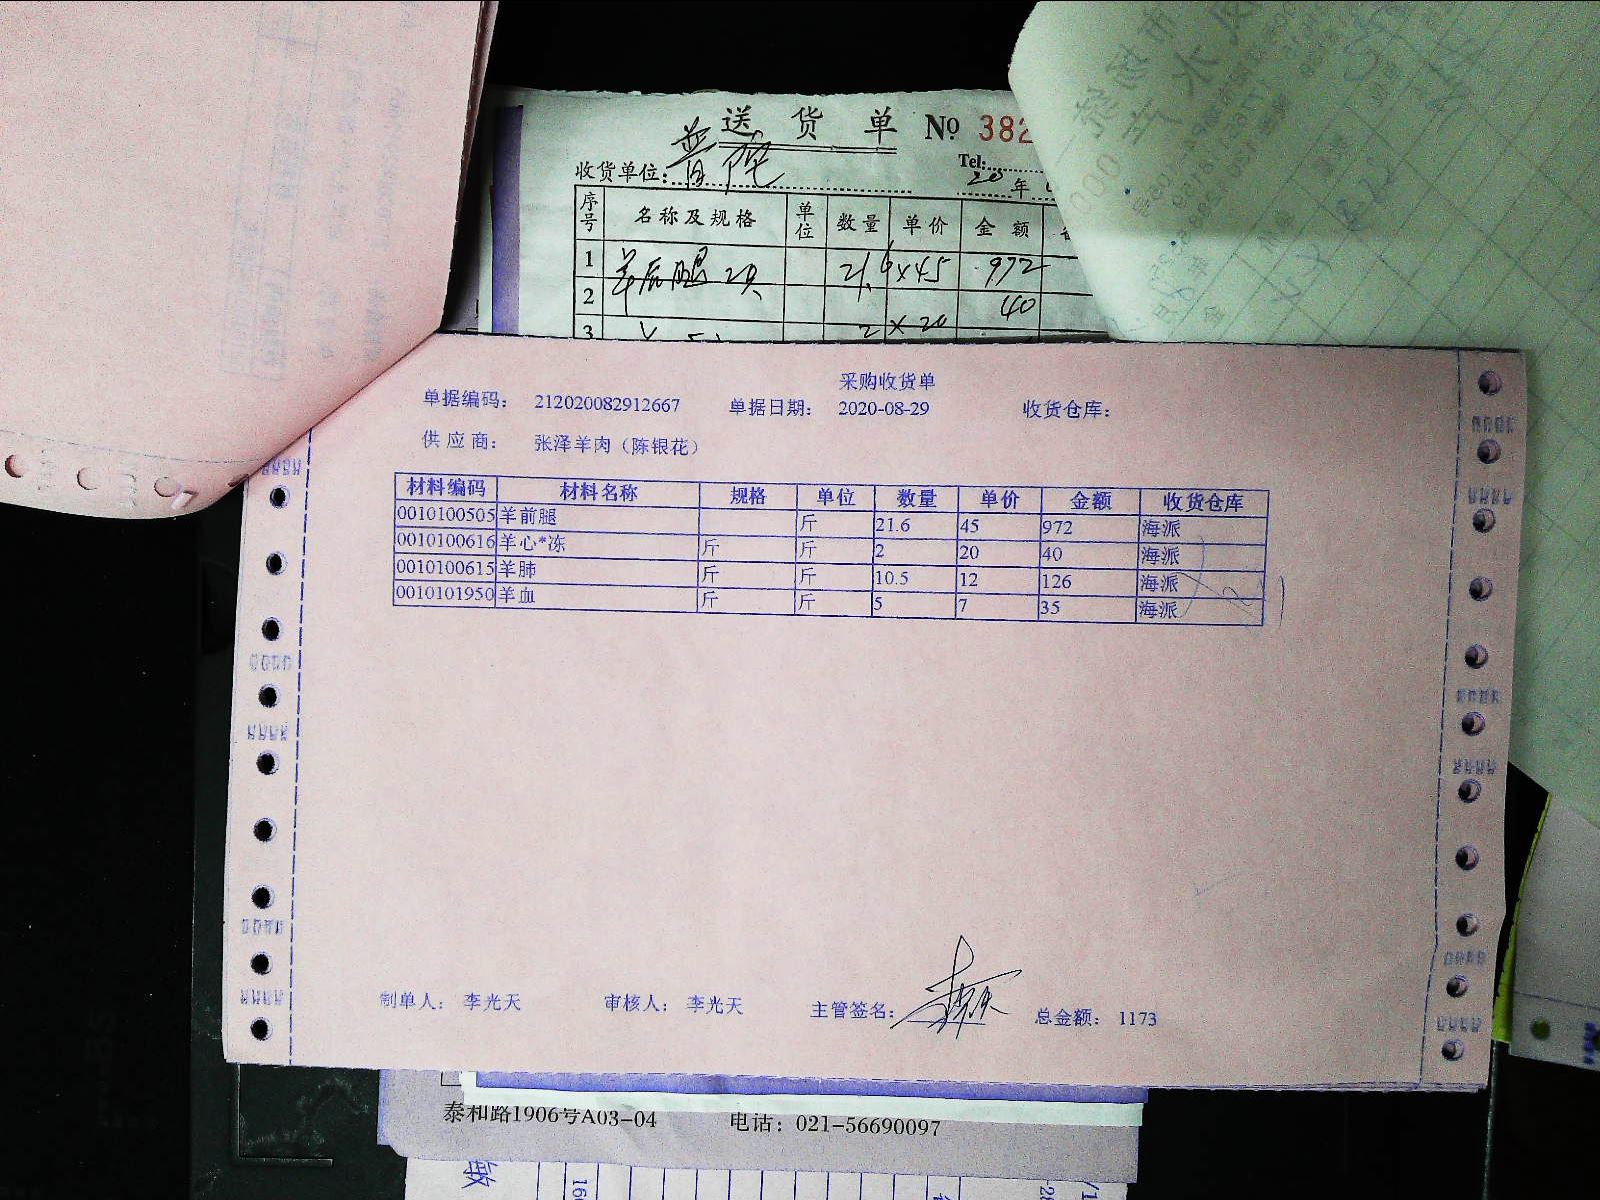 送货单 № 382
收货单位: 普陀 Tel:
20 年
序号 名称及规格 单位 数量 单价 金额
1 羊后腿 2只 21.6 ×45 972
2 40
3 2 ×20
采购收货单
单据编码: 212020082912667 单据日期: 2020-08-29 收货仓库:
供应商: 张泽羊肉（陈银花）
材料编码 材料名称 规格 单位 数量 单价 金额 收货仓库
0010100505 羊前腿 斤 21.6 45 972 海派
0010100616 羊心*冻 斤 斤 2 20 40 海派
0010100615 羊肺 斤 斤 10.5 12 126 海派
0010101950 羊血 斤 斤 5 7 35 海派
制单人: 李光天 审核人: 李光天 主管签名: 总金额: 1173
泰和路1906号A03-04 电话: 021-56690097